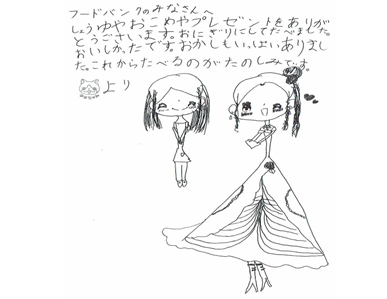 フードバンクのみなさんへ
しょうゆやおこめやプレゼントをありが
とうございます。おにぎりにしてたべました。
おいしかったです。おかしもいっぱいありまし
た。これからたべるのがたのしみです。
より